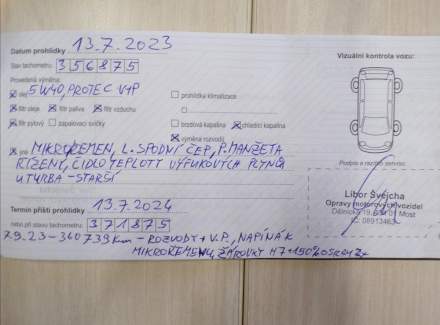 Datum prohlídky 13.7.2023
Stav tachometru: 356875
Vizuální kontrola vozu:
Provedená výměna:
olej 5W40, PROTEC V1P
prohlídka klimatizace
filtr oleje filtr paliva filtr vzduchu
filtr pylový zapalovací svíčky brzdová kapalina chladicí kapalina
výměna rozvodů
jiné MIKROŘEMEN, L. SPODNÍ ČEP, P. MANŽETA
ŘÍZENÍ, ČIDLO TEPLOTY VÝFUKOVÝCH PLYNŮ
U TURBA - STARŠÍ
Podpis a razítko servisu:
Libor Švejcha
Opravy motorových vozidel
Dělnická 19, 434 01 Most
Termín příští prohlídky 13.7.2024
nebo při stavu tachometru: 371875
7.9.23 - 360739 km - ROZVODY + V.P., NAPÍNÁK
MIKROŘEMENU, ŽÁROVKY H7 +150% OSRAM 2x